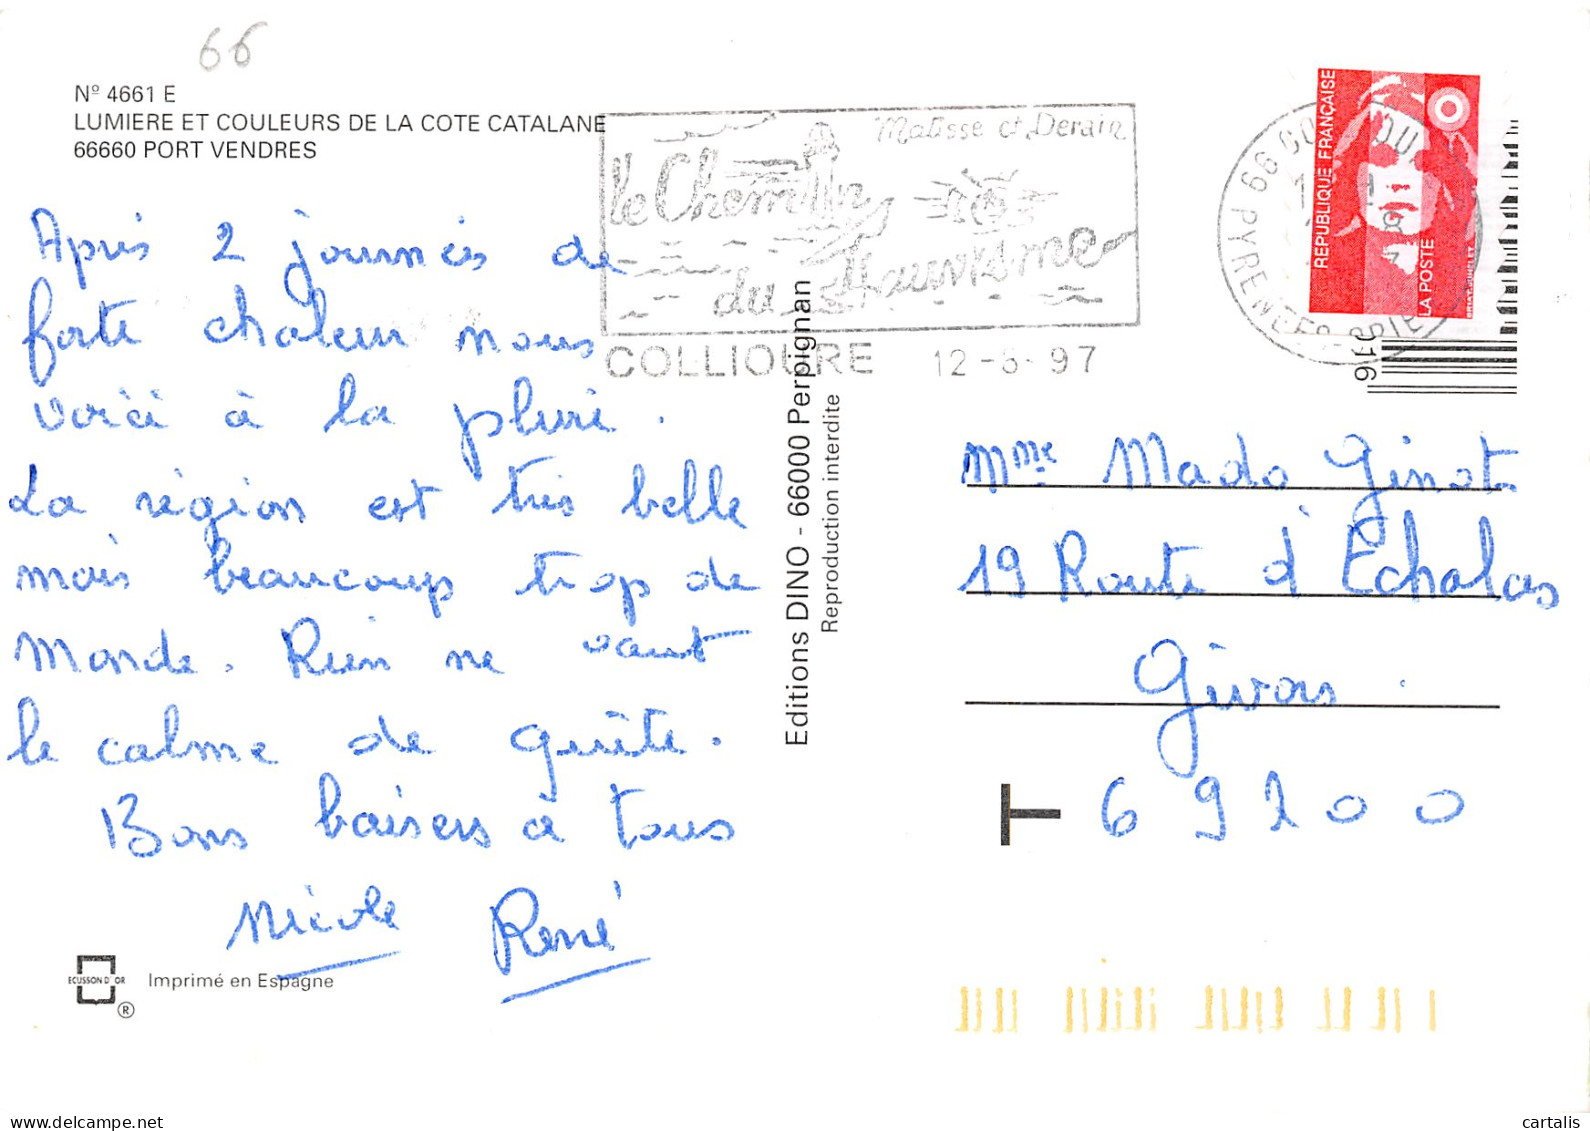 66
Nº 4661 E
LUMIERE ET COULEURS DE LA COTE CATALANE
66660 PORT VENDRES
Après 2 journées de
forte chaleur nous
voici à la pluie.
La région est très belle
mais beaucoup trop de
monde. Rien ne vaut
le calme de
Bons baisers à tous
Nicole René
ECUSSON D'OR
®
Imprimé en Espagne
Editions DINO - 66000 Perpignan
Reproduction interdite
Matisse et Derain
le Chemin
du Fauvisme
COLLIOURE 12-5-97
66 CO
PYRENEES ORIE
REPUBLIQUE FRANÇAISE
LA POSTE
Mme Mado Ginot
19 Route d'Echalas
Givors.
T 69200
© cartalis
www.delcampe.net